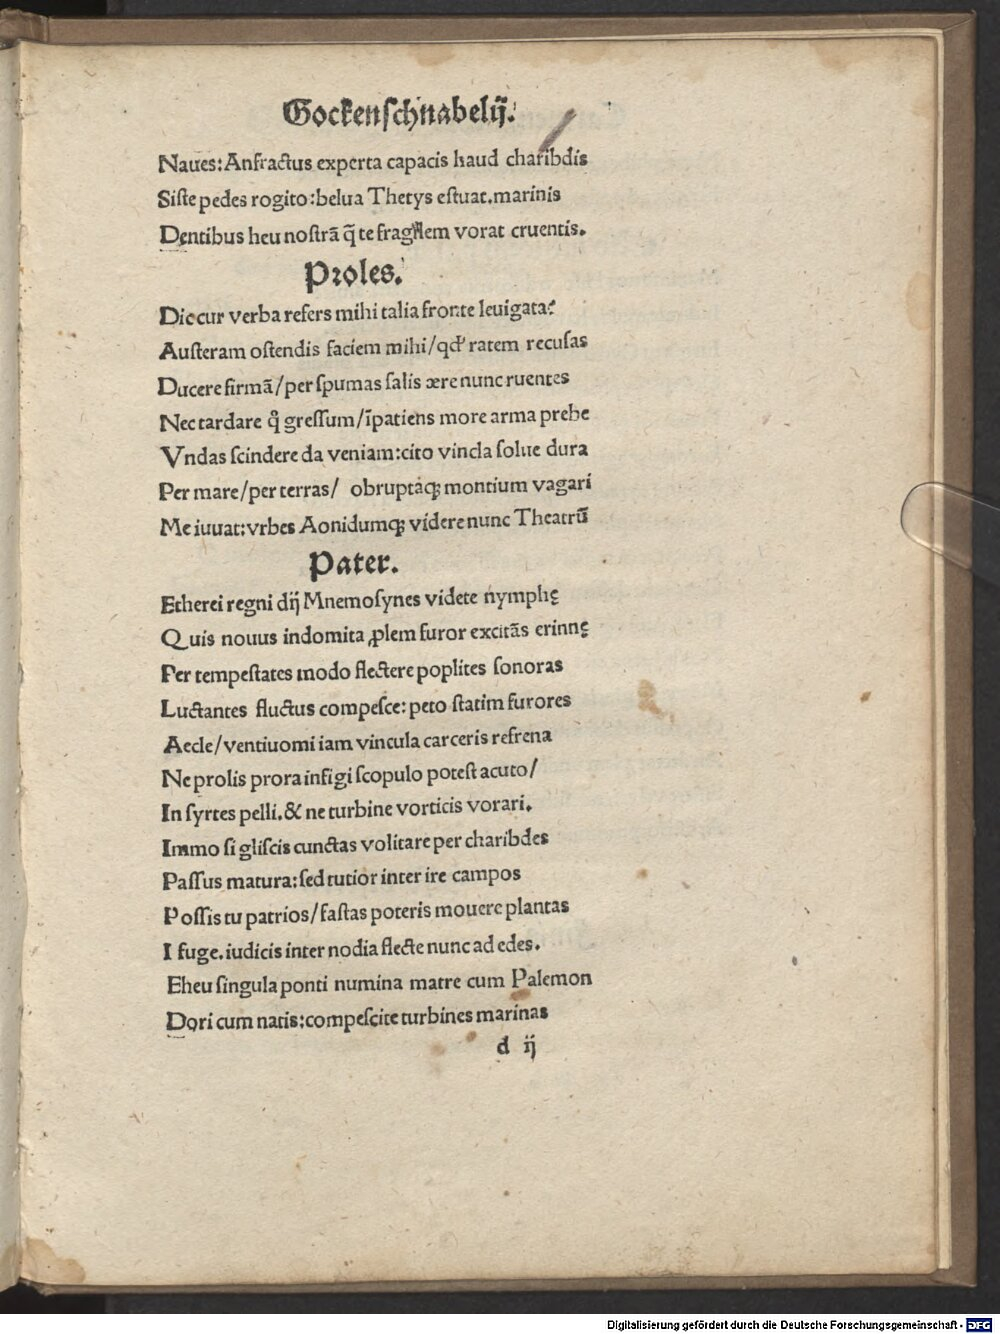 Gockenſchnabelĳ.
Naues: Anfractus experta capacis haud charibdis
Siſte pedes rogito: belua Thetys eſtuat. marinis
Dentibus heu noſtrā q̄ te fragilem vorat cruentis.
Proles.
Dic cur verba refers mihi talia fronte leuigata?
Auſteram oſtendis faciem mihi/ qđ ratem recuſas
Ducere firmā/ per ſpumas ſalis ære nunc ruentes
Nec tardare q̊ greſſum/ īpatiens more arma prebe
Vndas ſcindere da veniam: cito vincla ſolue dura
Per mare/ per terras/ obruptaqꝫ montium vagari
Me iuuat: vrbes Aonidumqꝫ videre nunc Theatrū
Pater.
Etherei regni dĳ Mnemoſynes videte nymphę
Quis nouus indomita ꝓlem furor excitās erinnę
Per tempeſtates modo flectere poplites ſonoras
Luctantes fluctus compeſce: peto ſtatim furores
Aecle/ ventiuomi iam vincula carceris refrena
Ne prolis prora infigi ſcopulo poteſt acuto/
In ſyrtes pelli. & ne turbine vorticis vorari.
Immo ſi gliſcis cunctas volitare per charibdes
Paſſus matura: ſed tutior inter ire campos
Poſſis tu patrios/ faſtas poteris mouere plantas
I fuge. iudicis inter nodia flecte nunc ad edes.
Eheu ſingula ponti numina matre cum Palemon
Dori cum natis: compeſcite turbines marinas
d ĳ
Digitalisierung gefördert durch die Deutsche Forschungsgemeinschaft - DFG